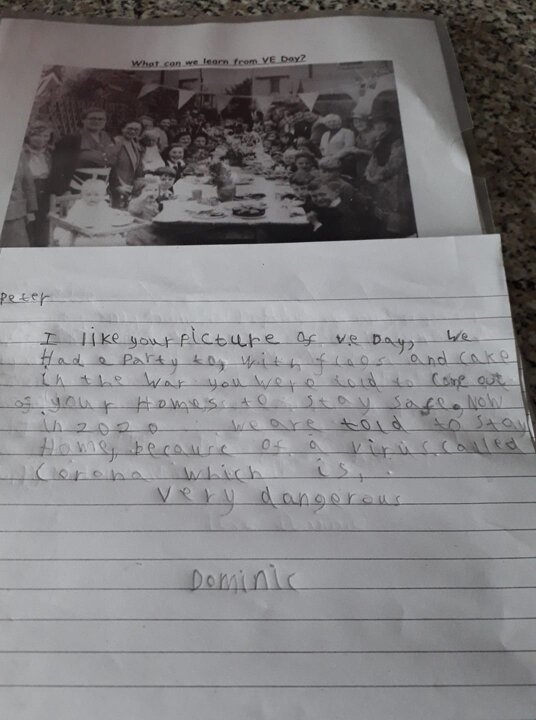 What can we learn from VE Day?
Peter
I like your picture of ve Day, We
Had a Party to, with flags and cake
in the war you were told to come out
of your Homes to stay safe. Now
in 2020 we are told to stay
Home, because of a virus called
Corona which is,
very dangerous
Dominic